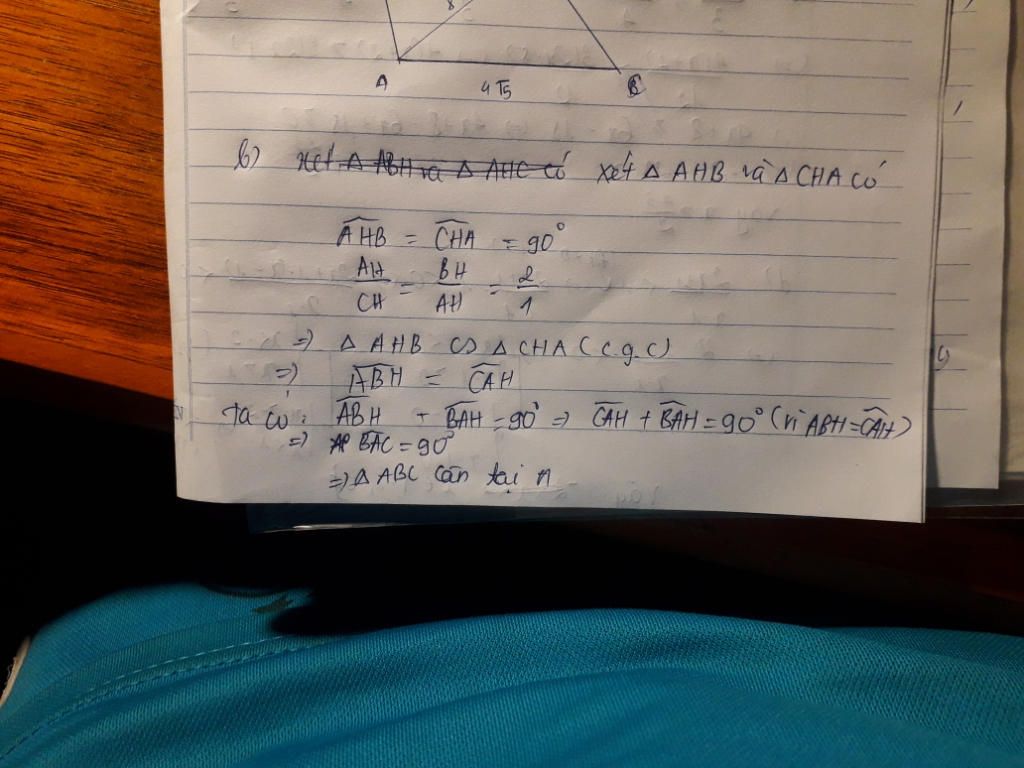 8
A
B
4√5
b) xét △ ABH và △ AHC có xét △ AHB và △ CHA có
AHB = CHA = 90°
AH/CH = BH/AH = 2/1
=> △ AHB ∽ △ CHA (c.g.c)
=> ABH = CAH
Ta có: ABH + BAH = 90° => CAH + BAH = 90° (vì ABH = CAH)
=> BAC = 90°
=> △ ABC cân tại A